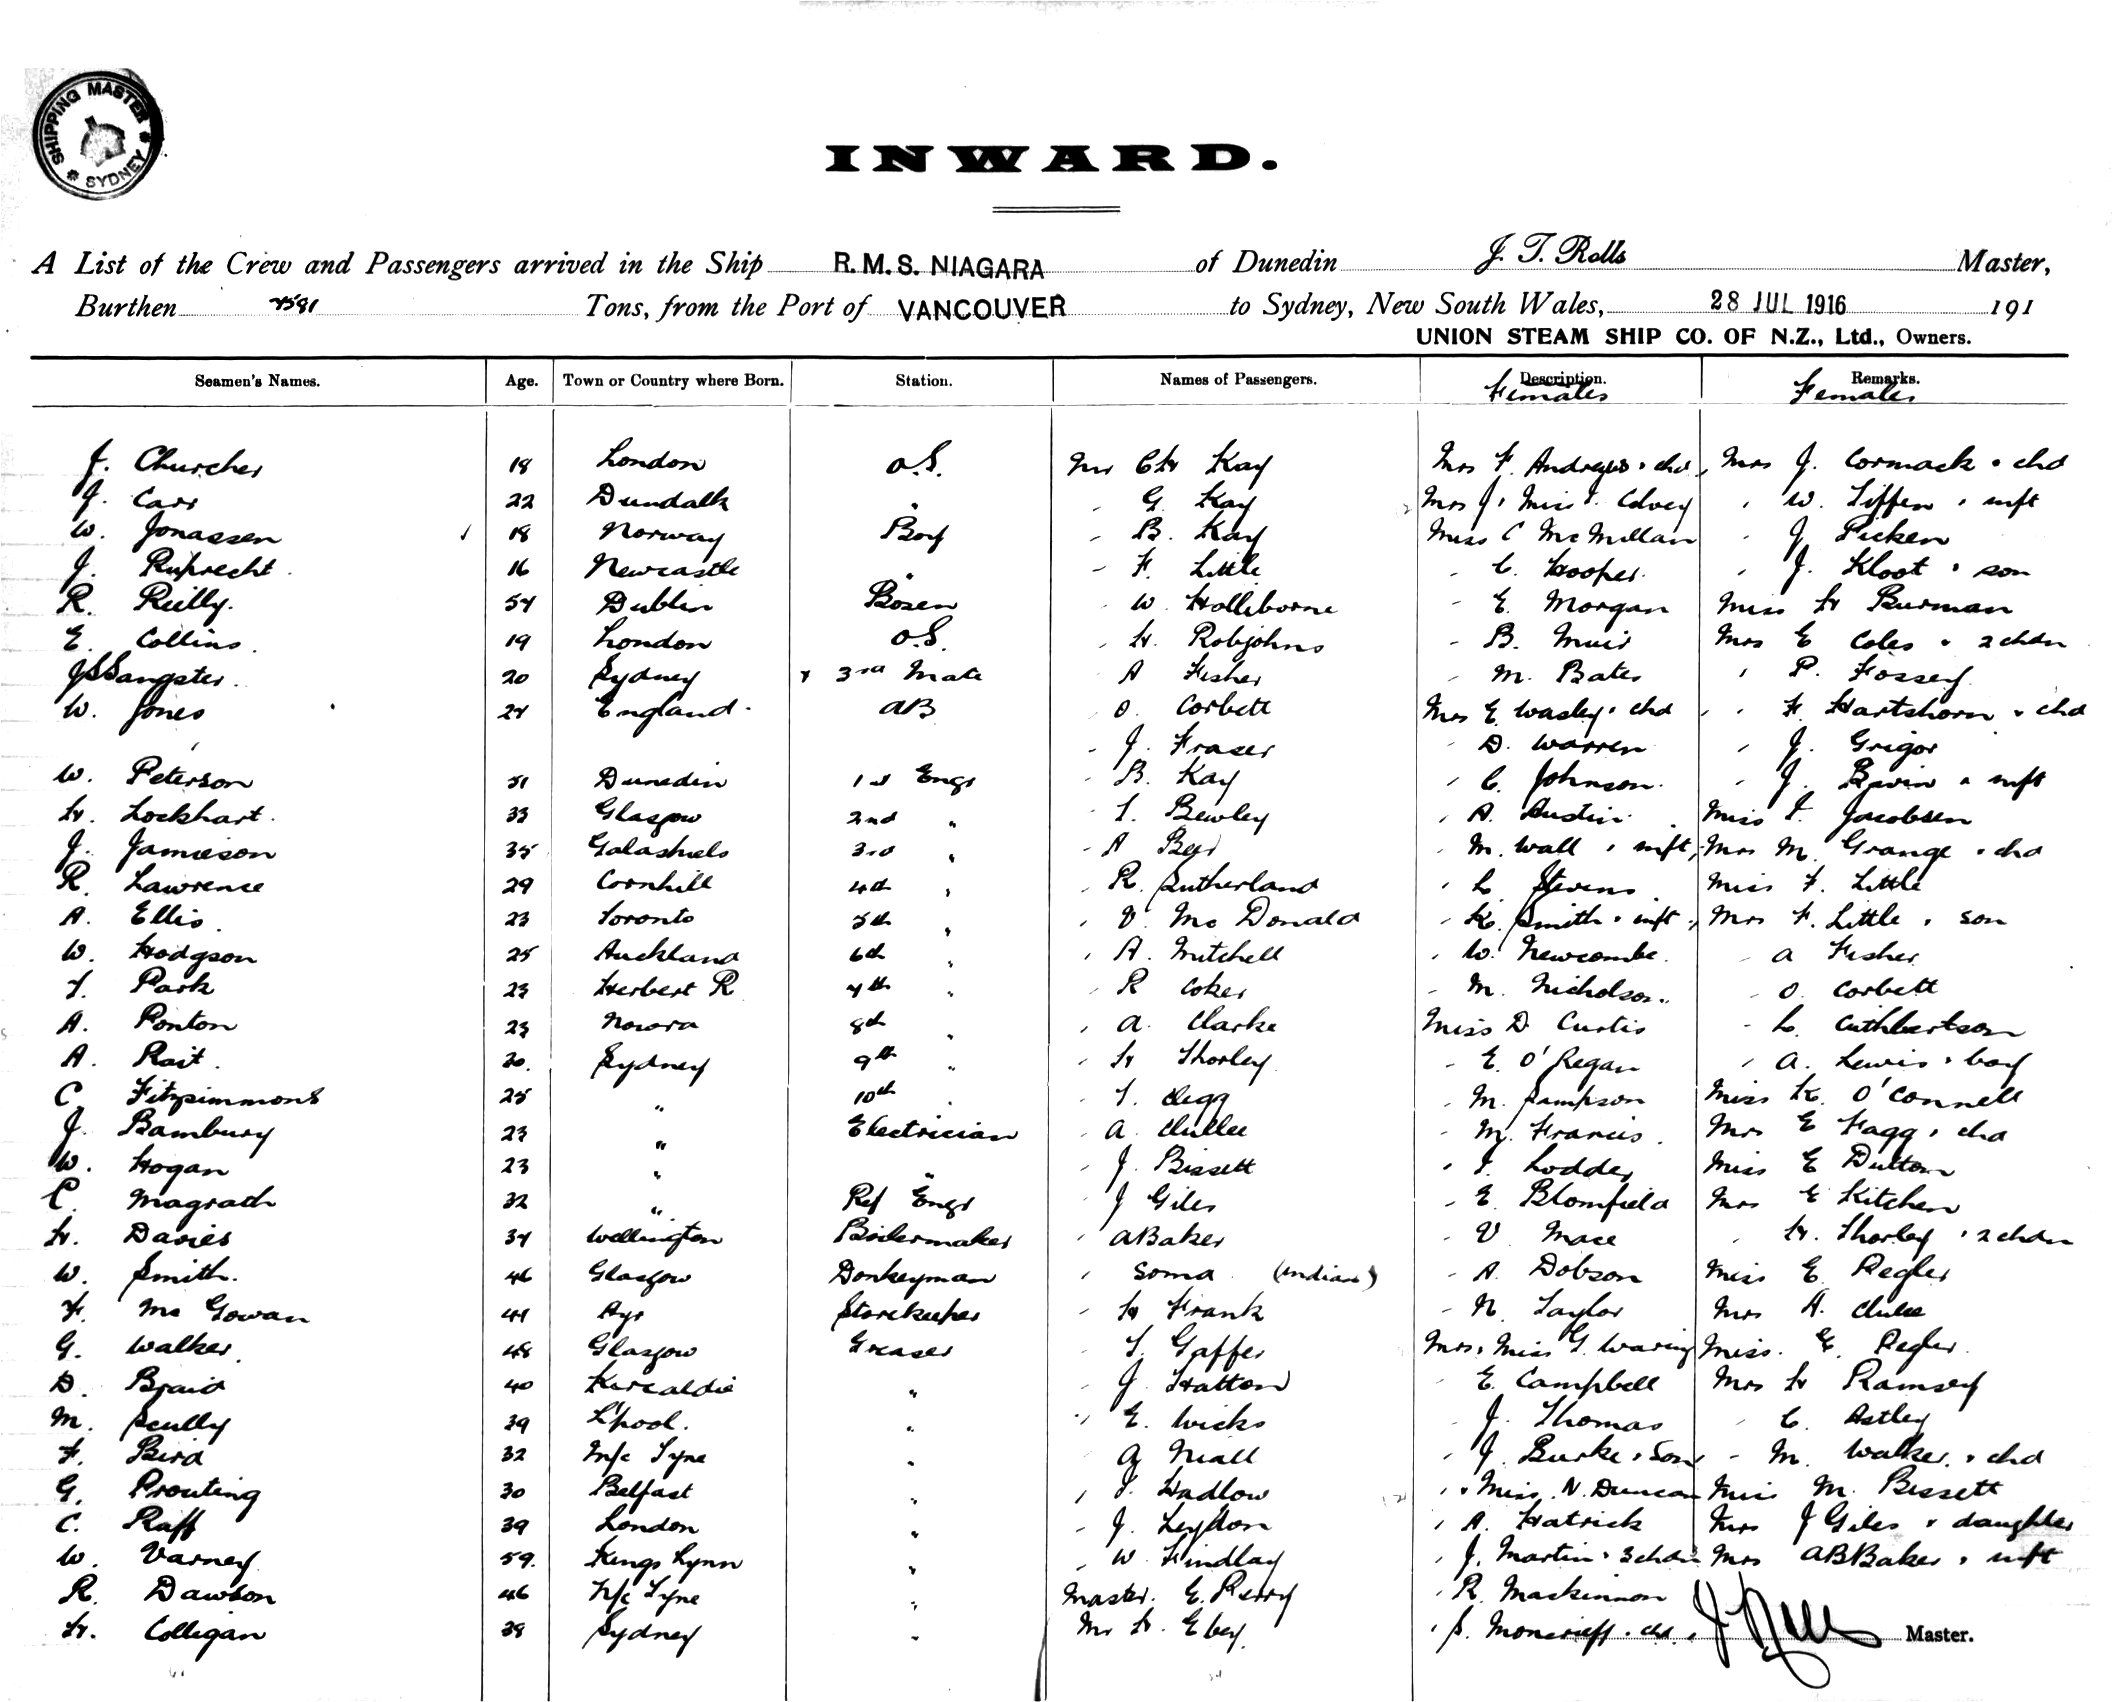 SHIPPING MASTER * SYDNEY *
INWARD.
A List of the Crew and Passengers arrived in the Ship R.M.S. NIAGARA of Dunedin J. T. Rolls Master,
Burthen 7581 Tons, from the Port of VANCOUVER to Sydney, New South Wales, 28 JUL 1916 191
UNION STEAM SHIP CO. OF N.Z., Ltd., Owners.
Seamen's Names. Age. Town or Country where Born. Station. Names of Passengers. Description. Remarks.
Females Females
J. Churcher 18 London O.S. Mr Ch Kay Mrs F. Andrews & chd, Mrs J. Cormack & chd
J. Carr 22 Dundalk " " G. Kay Mrs J & Miss I. Colvey " W. Tiffen & inft
W. Jonassen 18 Norway Boy " B. Kay Miss C McMillan " J Picken
J. Ruprecht 16 Newcastle " " F. Little " C. Hooper " J. Kloot & son
R. Reilly. 54 Dublin Bosen " W. Holliborne " E. Morgan Miss H Burman
E. Collins. 19 London O.S. " H. Robjohns " B. Muir Mrs E Coles & 2 chdn
J S Sangster. 20 Sydney 3rd Mate " A Fisher " M. Bates " P. Fossey
W. Jones 24 England. AB " O. Corbett Mrs E. Wasley & chd " F. Hartshorn & chd
" J. Fraser " D. Warren " J. Grigor
W. Peterson 51 Dunedin 1st Engr " B. Kay " C. Johnson. " J. Bavin & inft
H. Lockhart. 33 Glasgow 2nd " " T. Bewley " A. Austin. Miss I. Jacobsen
J. Jamieson 35 Galashiels 3rd " " A Beer " M. Wall & inft, Mrs M. Grange & chd
R. Lawrence 29 Cornhill 4th " " R. Sutherland " L Stevens Miss F. Little
A. Ellis. 23 Toronto 5th " " D. McDonald " K. Smith & inft, Mrs F. Little & son
W. Hodgson 25 Auckland 6th " " A. Mitchell " W. Newcombe. " A Fisher
T. Park 23 Herbert R 7th " " R Coker " M. Nicholson. " O. Corbett
A. Ponton 23 Nowra 8th " " A. Clarke Miss D Curtis " L. Cuthbertson
A. Rait. 30. Sydney 9th " " H Thorley " E. O'Regan " A. Lewis & boy
C Fitzsimmons 25 " 10th " " T. Clegg " M. Sampson Miss K. O'Connell
J. Bambury 23 " Electrician " A. Chullee " M. Francis. Mrs E Fagg & chd
W. Hogan 23 " " " J. Bissett " I. Lodder Miss E Dutton
C. Magrath 32 " Ref Engr " J Giles " E. Blomfield Mrs E Kitchen
H. Davies 34 Wellington Boilermaker " A Baker " V Mace " H. Thorley & 2 chdn
W. Smith. 46 Glasgow Donkeyman " Soma (Indian) " A. Dobson Miss E Regler
F. McGowan 41 Ayr Storekeeper " H Frank " N. Taylor Mrs A.
G. Walker. 48 Glasgow Greaser " T. Gaffer Mrs & Miss G. Waring Miss. E. Regler.
D. Braid 40 Kircaldie " " J. Hatton " E. Campbell Mrs H Ramsey
M. Scully 39 L'pool. " " E. Wicks " J. Thomas " C. Astley
F. Bird 32 N/c Tyne " A Niall " J. Burke & Son " M. Walker. & chd
G. Prouting 30 Belfast " " I. Hadlow " Miss. N. Duncan Miss M. Bissett
C. Raff 39 London " " J. Leydon " A. Hatrick Mrs J Giles & daughter
W. Varney 59. Kings Lynn " " W Findlay " J. Martin & 3 chdn Mrs AB Baker & inft
R. Dawson 46 N/c Tyne " Master. E. Perry " R. Mackinnon
H. Colligan 38 Sydney " Mr H. Eby. " S. Moncrieff & chd. J Rolls Master.